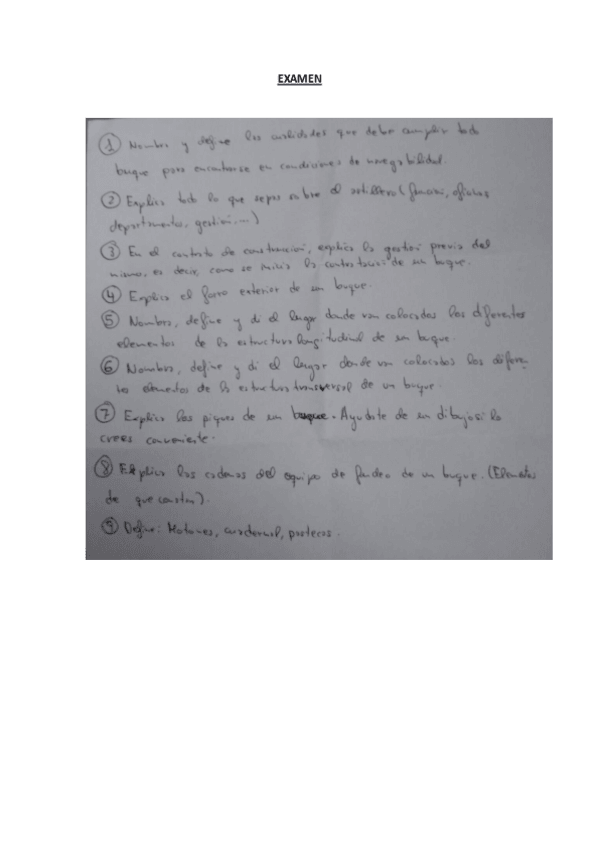 EXAMEN
① Nombra y define las cualidades que debe cumplir todo
buque para encontrarse en condiciones de navegabilidad.
② Explica todo lo que sepas sobre el astillero (función, oficinas
departamentos, gestión...)
③ En el contrato de construcción, explica la gestión previa del
mismo, es decir, como se inicia la de un buque.
④ Explica el forro exterior de un buque.
⑤ Nombra, define y di el lugar donde van colocados los diferentes
elementos de la estructura longitudinal de un buque.
⑥ Nombra, define y di el lugar donde van colocados los diferen-
tes elementos de la estructura transversal de un buque.
⑦ Explica los piques de un buque. Ayudate de un dibujo si lo
crees conveniente.
⑧ Explica las cadenas del equipo de fondeo de un buque. (Elementos
de que constan).
⑨ Define: Motones, cuadernal, pastecas.